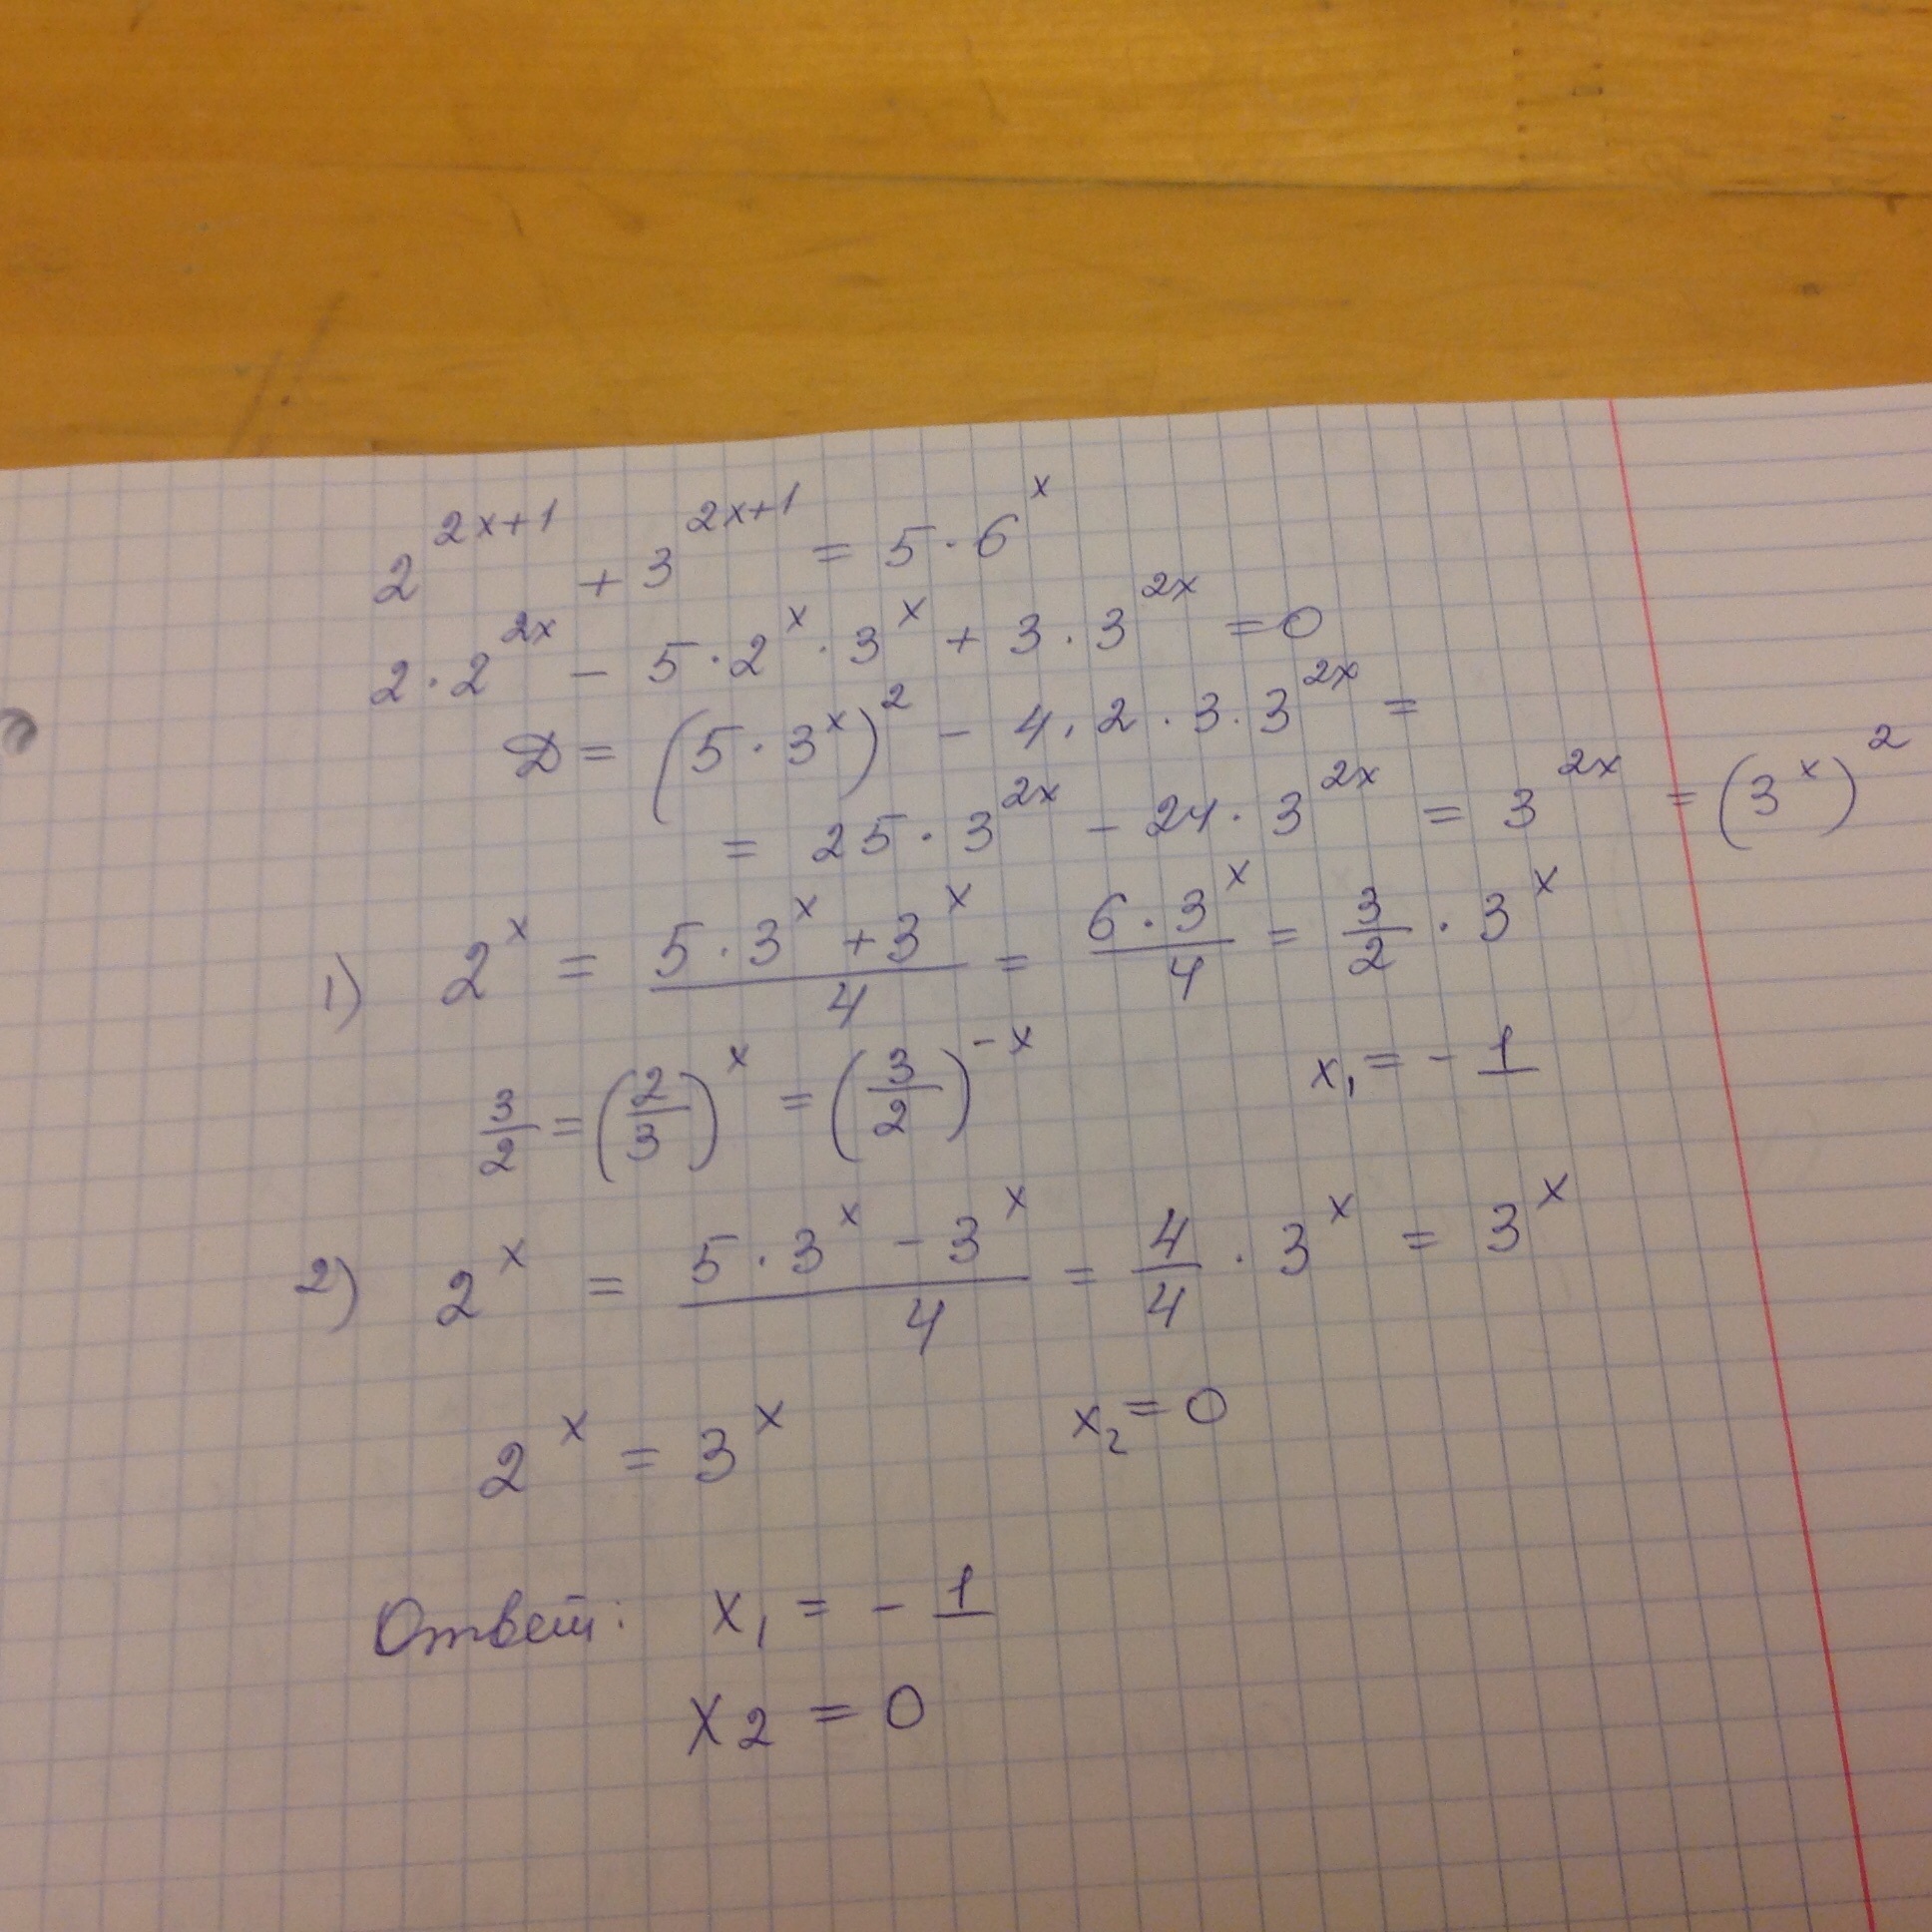 2^{2x+1} + 3^{2x+1} = 5 · 6^x
2 · 2^{2x} - 5 · 2^x · 3^x + 3 · 3^{2x} = 0
D = (5 · 3^x)^2 - 4 · 2 · 3 · 3^{2x} =
= 25 · 3^{2x} - 24 · 3^{2x} = 3^{2x} = (3^x)^2
1) 2^x = \frac{5 · 3^x + 3^x}{4} = \frac{6 · 3^x}{4} = \frac{3}{2} · 3^x
\frac{3}{2} = (\frac{2}{3})^x = (\frac{3}{2})^{-x} x_1 = -1
2) 2^x = \frac{5 · 3^x - 3^x}{4} = \frac{4}{4} · 3^x = 3^x
2^x = 3^x x_2 = 0
Ответ: x_1 = -1
x_2 = 0